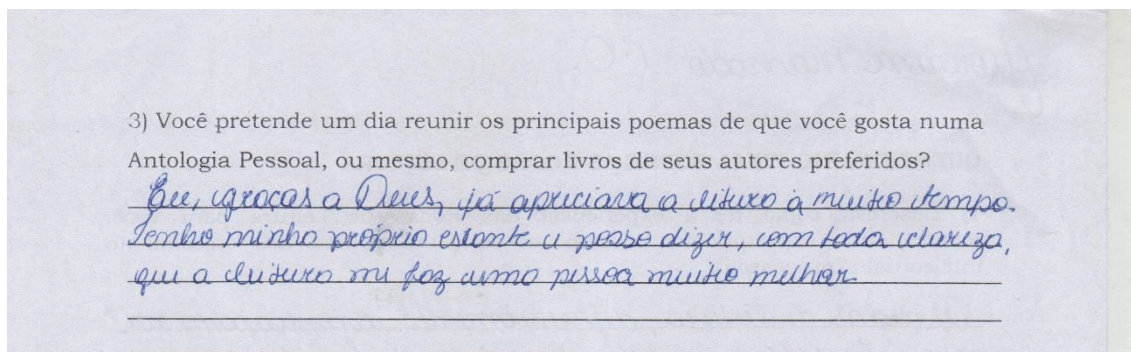 3) Você pretende um dia reunir os principais poemas de que você gosta numa
Antologia Pessoal, ou mesmo, comprar livros de seus autores preferidos?
Eu, graças a Deus, já apreciava a leitura à muito tempo.
Tenho minha próprio estante e posso dizer, com toda clareza,
que a leitura me faz uma pessoa muito melhor.